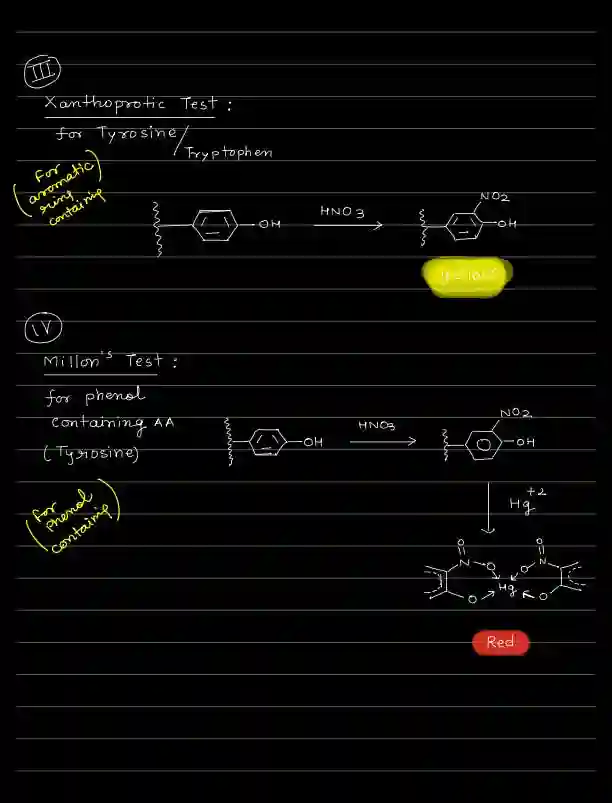 III
Xanthoprotic Test :
for Tyrosine/
Tryptophen
(For aromatic ring containing)
OH
HNO3
NO2
OH
IV
Millon's Test :
for phenol
containing AA
(Tyrosine)
OH
HNO3
NO2
OH
Hg+2
(For phenol containing)
O
N
O
Hg
O
N
O
O
O
Red